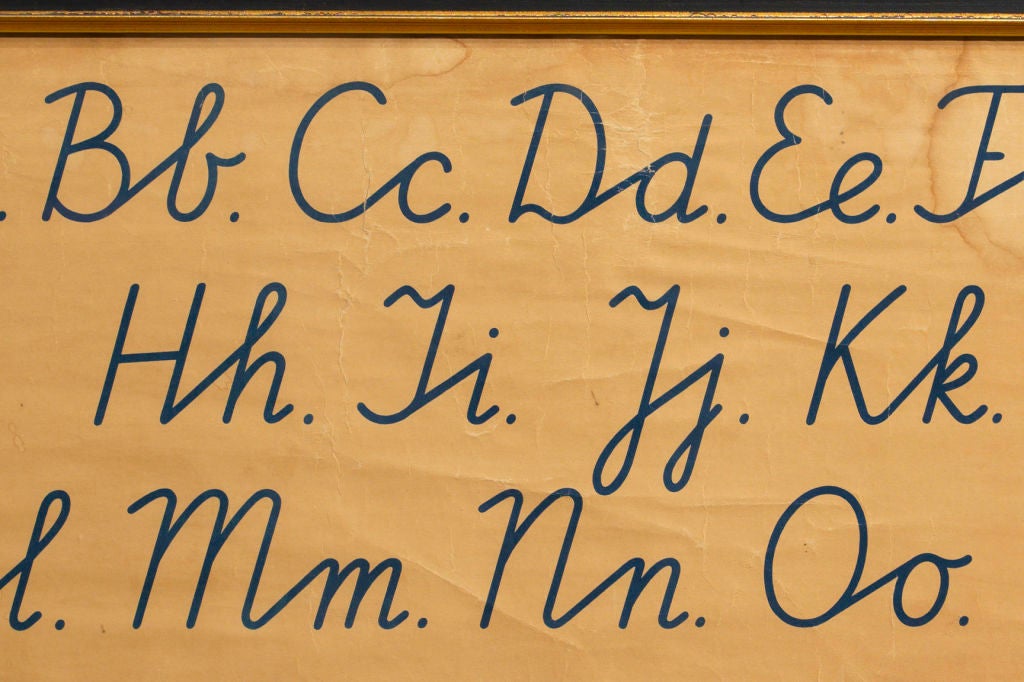 . Bb. Cc. Dd. Ee. F
Hh. Ii. Jj. Kk.
l. Mm. Nn. Oo.